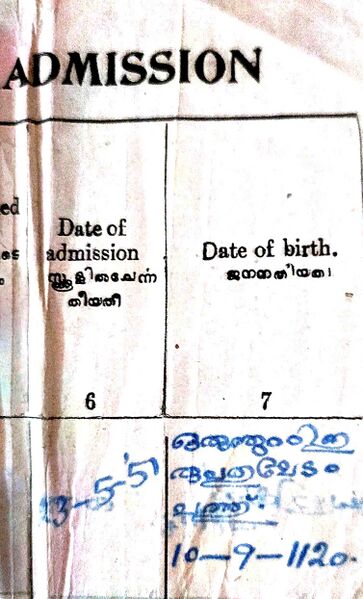 ADMISSION
ed
Date of
admission
സ്കൂളിൽചേർന്ന
തീയതി
Date of birth.
ജനനതീയതി
6
7
3-5-51
ഇരുപത
മേടം
പത്ത്.
10-9-1120.